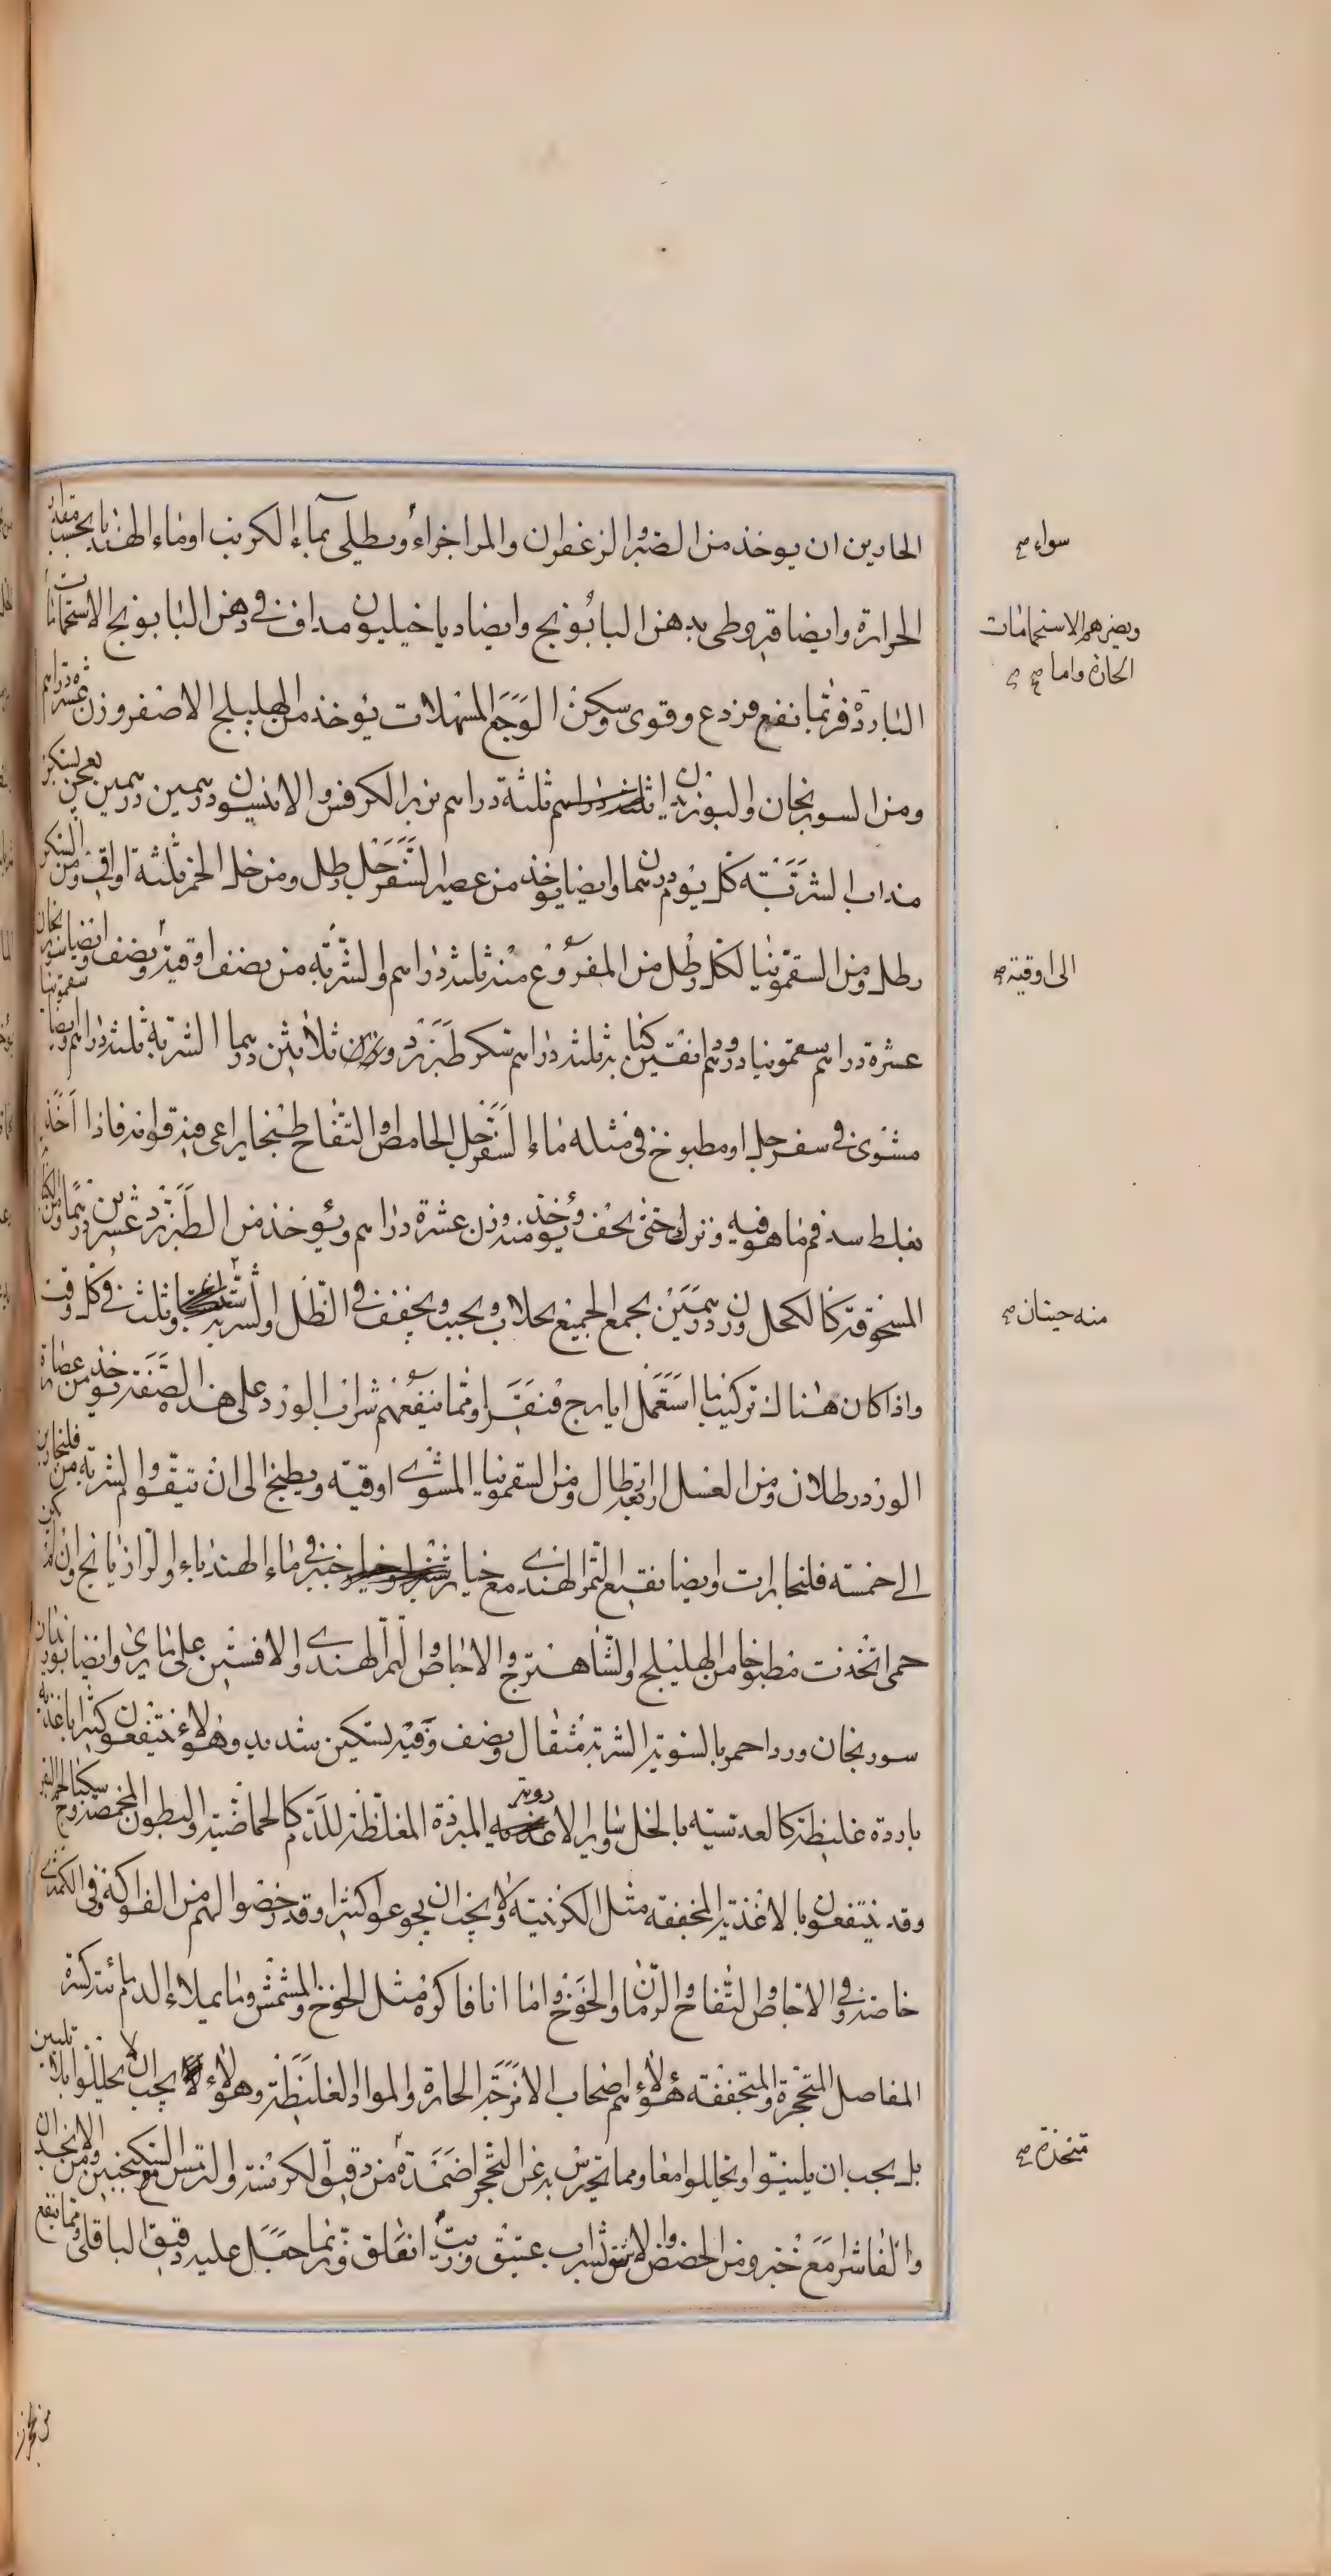 الحادين ان يوخذ من الصبر والزعفران والمر اجزاء ويطلى بماء الكرنب او ماء الهندبا بحسب مقدار
سواء صح
الحرارة وايضا قيروطى بدهن البابونج وايضا دياخيليون مداف فى دهن البابونج الاستحمامات
ويضرهم الاستحمامات
الحارة واما صح
الباردة فربما نفع فردع وقوى وسكن الوجع المسهلات يؤخذ من الهليلج الاصفر وزن عشرة دراهم
ومن السورنجان والبوزيدان ثلثة دراهم بزر الكرفس والانيسون درهمين درهمين يعجن بسكر
مذاب الشربة كل يوم درهما وايضا يوخذ من عصير السفرجل رطل ومن خل الخمر ثلثة اواقى ومن السكر
رطل ومن السقمونيا لكل رطل من المفروغ منه ثلثة دراهم والشربة من نصف اوقية ونصف وايضا سورنجان
الى اوقية صح
عشرة دراهم سقمونيا درهم كبابة ثلثة دراهم سكر طبرزد وزن ثلاثين درهما الشربة ثلثة دراهم وايضا سقمونيا
مشوى فى سفرجل او مطبوخ فى مثله ماء السفرجل الحامض والتفاح طبخا يراعى فيه قوامه فاذا اخذ
يغلظ سد فم ما هو فيه وترك حتى يجف ويؤخذ منه وزن عشرة دراهم ويؤخذ من الطبرزد عشرين درهما ومن
المسحوقة كالكحل وزن درهمين يجمع الجميع بجلاب ويحبب ويجفف فى الظل والشربة وثلث فى كل وقت
منه حبتان صح
واذا كان هناك تركيب ما استعمل ايارج فيقرا ومما ينفعهم شراب الورد على هذه الصفة يؤخذ من عصارة
الورد رطلان ومن العسل اربعة ارطال ومن السقمونيا المشوى اوقية ويطبخ الى ان يتقوم والشربة من فلنجارين
الى خمسة فلنجارات وايضا نقيع التمر الهندى مع خيار شنبر فى ماء الهندباء والرازيانج وان لم تكن
حمى اتخذت مطبوخا من الهليلج والشاهترج والاجاص والتمر الهندى والافسنتين على ما يرى وايضا بوزيدان
سورنجان ورد احمر بالسوية الشربة مثقال ونصف وفيه تسكين شديد وهؤلاء ينتفعون كثيرا باغذية
باردة غليظة كالعدسية بالخل وساير الاغذية المبردة المغلظة للدم كالحماضية والبطون المحمصة
وقد ينتفعون بالاغذية المجففة مثل الكرنبية ولا يجب ان يجوعوا كثيرا وقد رخصوا لهم من الفواكه فى الكمثرى
خاصة وفى الاجاص والتفاح والرمان والخوخ واما انا فاكره مثل الخوخ والمشمش وما يملاء الدم مائية كثيرة
المفاصل المتحجرة والمتجففة هؤلاء هم اصحاب الامزجة الحارة والمواد الغليظة وهؤلاء يجب ان لا يحللوا بلا تليين
بل يجب ان يلينوا ويحللوا معا ومما يحرس به عن التحجر اضمدة من دقيق الكرسنة والترمس مع السكنجبين ومن الانجدان
متخذة صح
والفاشرا مع خمر ومن الحضض والاشق شراب عتيق وزيت انفاق وربما جعل عليه دقيق الباقلى ومما ينفع